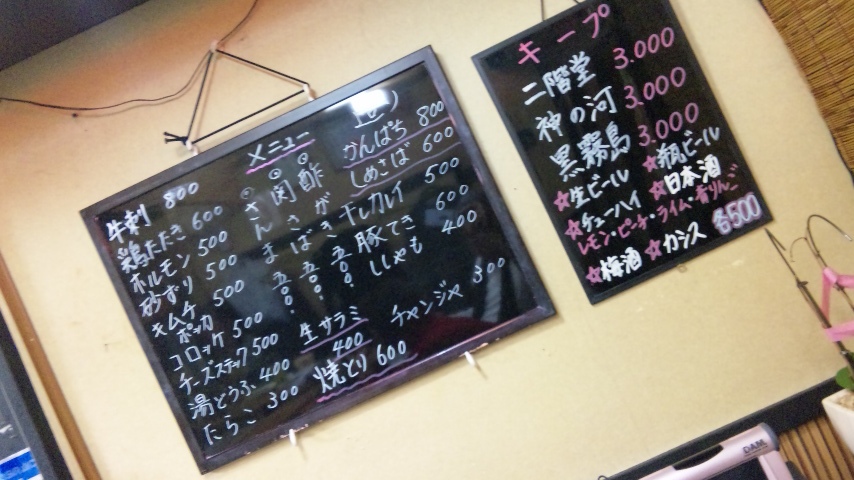 メニュー
牛刺 800
鶏たたき 600
ホルモン 500
砂ずり 500
キムチ 500
ポッカ
コロッケ 500
チーズスティック 500
湯とうふ 400
たらこ 300
さんま 五〇〇
関さば 五〇〇
酢がき 五〇〇
生サラミ
400
焼とり 600
かんぱち 800
しめさば 600
干しカレイ 500
豚てき 600
ししゃも 400
チャンジャ 300
キープ
二階堂 3.000
神の河 3.000
黒霧島 3.000
☆生ビール ☆瓶ビール
☆チューハイ ☆日本酒
レモン・ピーチ・ライム・青りんご
☆梅酒 ☆カシス 各500
DAM